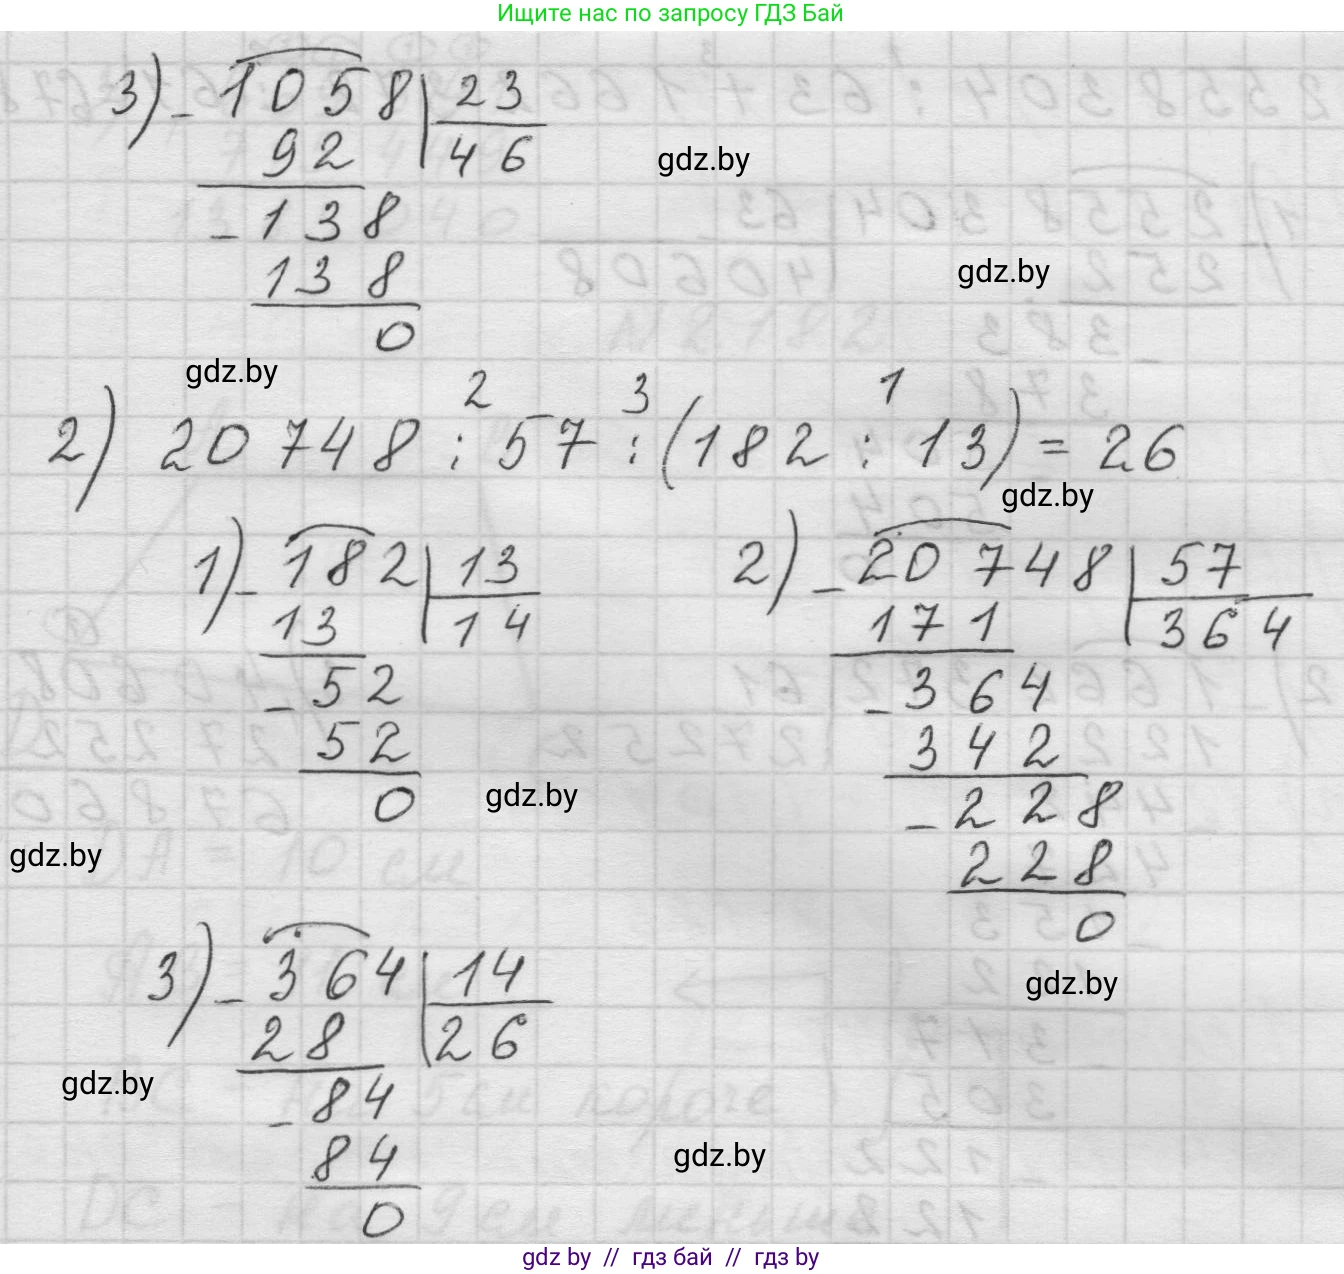 Ищите нас по запросу ГДЗ Бай
3) - 1058 | 23
92 | 46
gdz.by
- 138
138
gdz.by
0
gdz.by
2 3 1
2) 20748 : 57 : (182 : 13) = 26
gdz.by
1) - 182 | 13
13 | 14
- 52
52
0
gdz.by
2) - 20748 | 57
171 | 364
- 364
342
- 228
228
0
gdz.by
gdz.by
3) - 364 | 14
28 | 26
- 84
84
0
gdz.by
gdz.by
gdz by // гдз бай // гдз by